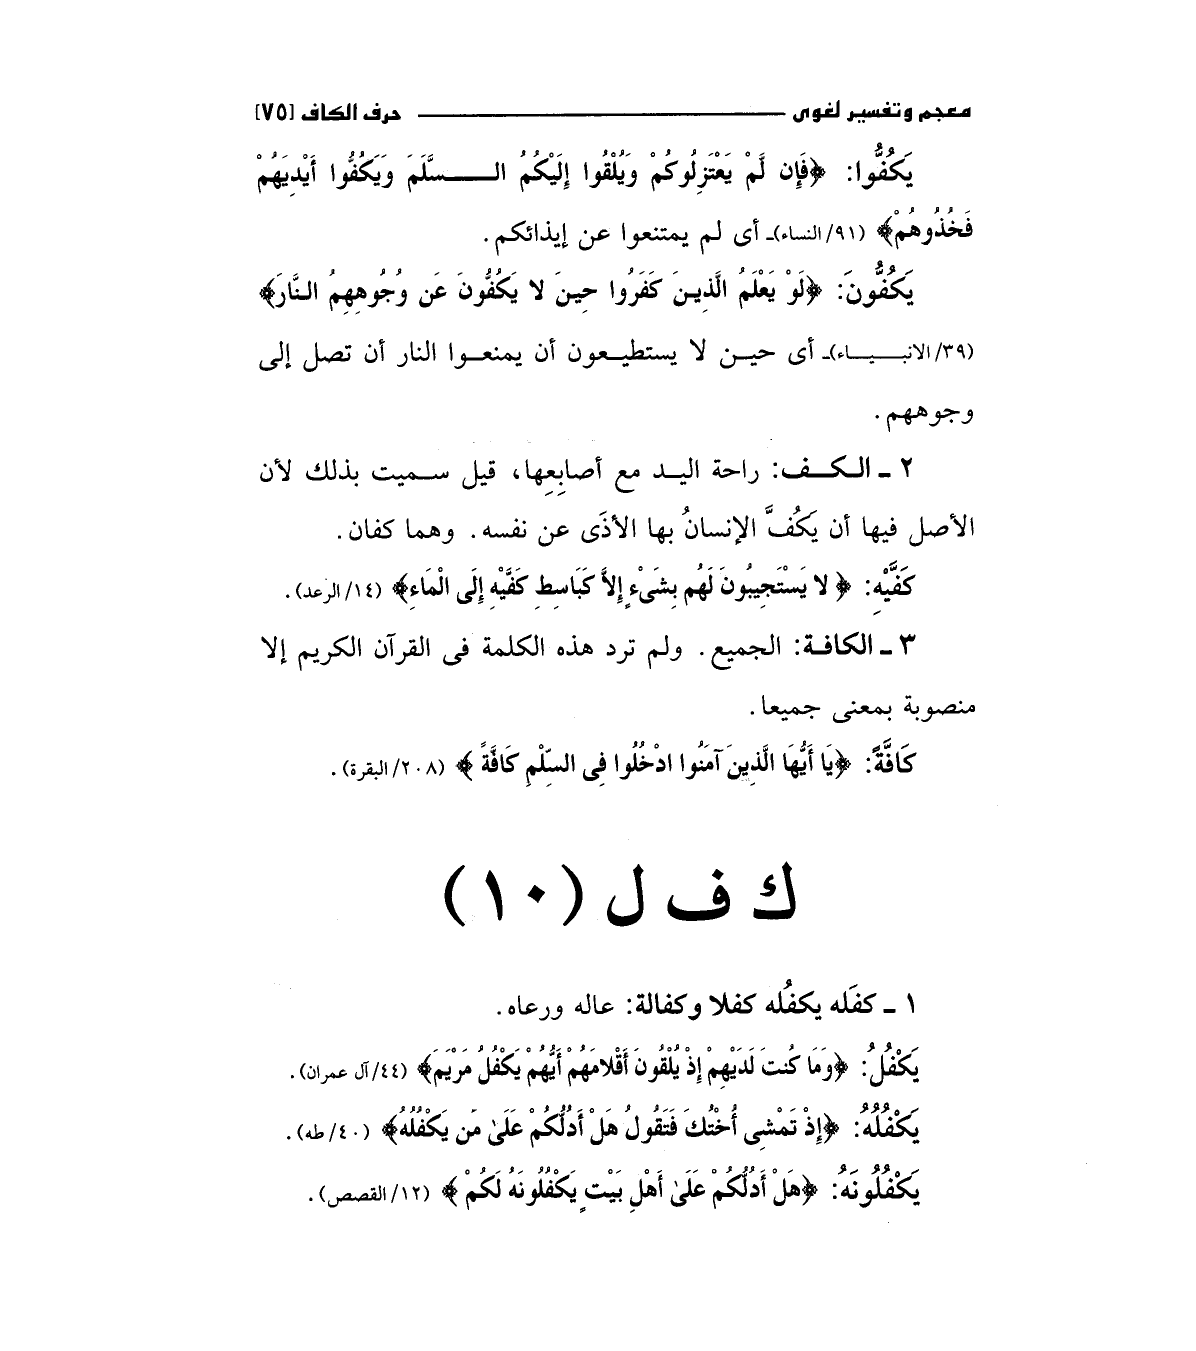 معجم وتفسير لغوى ــــــــــــ حرف الكاف [٧٥]
يَكُفُّوا: ﴿فَإِن لَّمْ يَعْتَزِلُوكُمْ وَيُلْقُوا إِلَيْكُمُ السَّلَمَ وَيَكُفُّوا أَيْدِيَهُمْ
فَخُذُوهُمْ﴾ (٩١/ النساء)ـ أى لم يمتنعوا عن إيذائكم.
يَكُفُّونَ: ﴿لَوْ يَعْلَمُ الَّذِينَ كَفَرُوا حِينَ لا يَكُفُّونَ عَن وُجُوهِهِمُ النَّارَ﴾
(٣٩/ الانبياء)ـ أى حين لا يستطيعون أن يمنعوا النار أن تصل إلى
وجوههم.
٢ ـ الكف: راحة اليد مع أصابِعِها، قيل سميت بذلك لأن
الأصل فيها أن يَكُفَّ الإنسانُ بها الأذَى عن نفسه. وهما كفان.
كَفَّيْهِ: ﴿ لا يَسْتَجِيبُونَ لَهُم بِشَىْءٍ إِلاَّ كَبَاسِطِ كَفَّيْهِ إِلَى الْمَاءِ﴾ (١٤/ الرعد).
٣ ـ الكافة: الجميع. ولم ترد هذه الكلمة فى القرآن الكريم إلا
منصوبة بمعنى جميعا.
كَافَّةً: ﴿يَا أَيُّهَا الَّذِينَ آمَنُوا ادْخُلُوا فِى السِّلْمِ كَافَّةً ﴾ (٢٠٨/ البقرة).
ك ف ل (١٠)
١ ـ كفَله يكفُله كفلا وكفالة: عاله ورعاه.
يَكْفُلُ: ﴿وَمَا كُنتَ لَدَيْهِمْ إِذْ يُلْقُونَ أَقْلامَهُمْ أَيُّهُمْ يَكْفُلُ مَرْيَمَ﴾ (٤٤/ آل عمران).
يَكْفُلُهُ: ﴿إِذْ تَمْشِى أُخْتُكَ فَتَقُولُ هَلْ أَدُلُّكُمْ عَلَىٰ مَن يَكْفُلُهُ﴾ (٤٠/ طه).
يَكْفُلُونَهُ: ﴿هَلْ أَدُلُّكُمْ عَلَىٰ أَهْلِ بَيْتٍ يَكْفُلُونَهُ لَكُمْ ﴾ (١٢/ القصص).